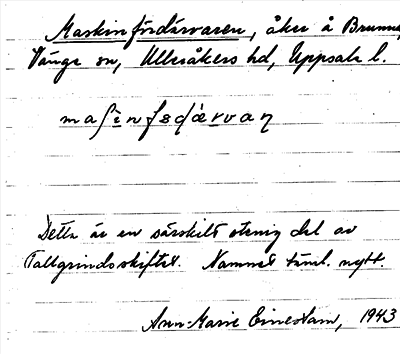 Maskinfördärvaren, åker å Brunna,
Vänge sn, Ulleråkers hd, Uppsala l.
maʃinfœdærvaṇ
Detta är en särskilt stenig del av
Tallgrindsskiftet. Namnet troml. nytt.
Ann-Marie Einestam, 1943